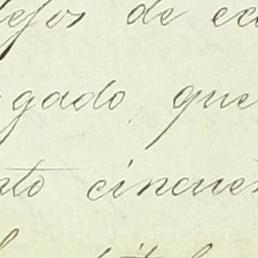 lejos de ec
gado que
nto cincuen